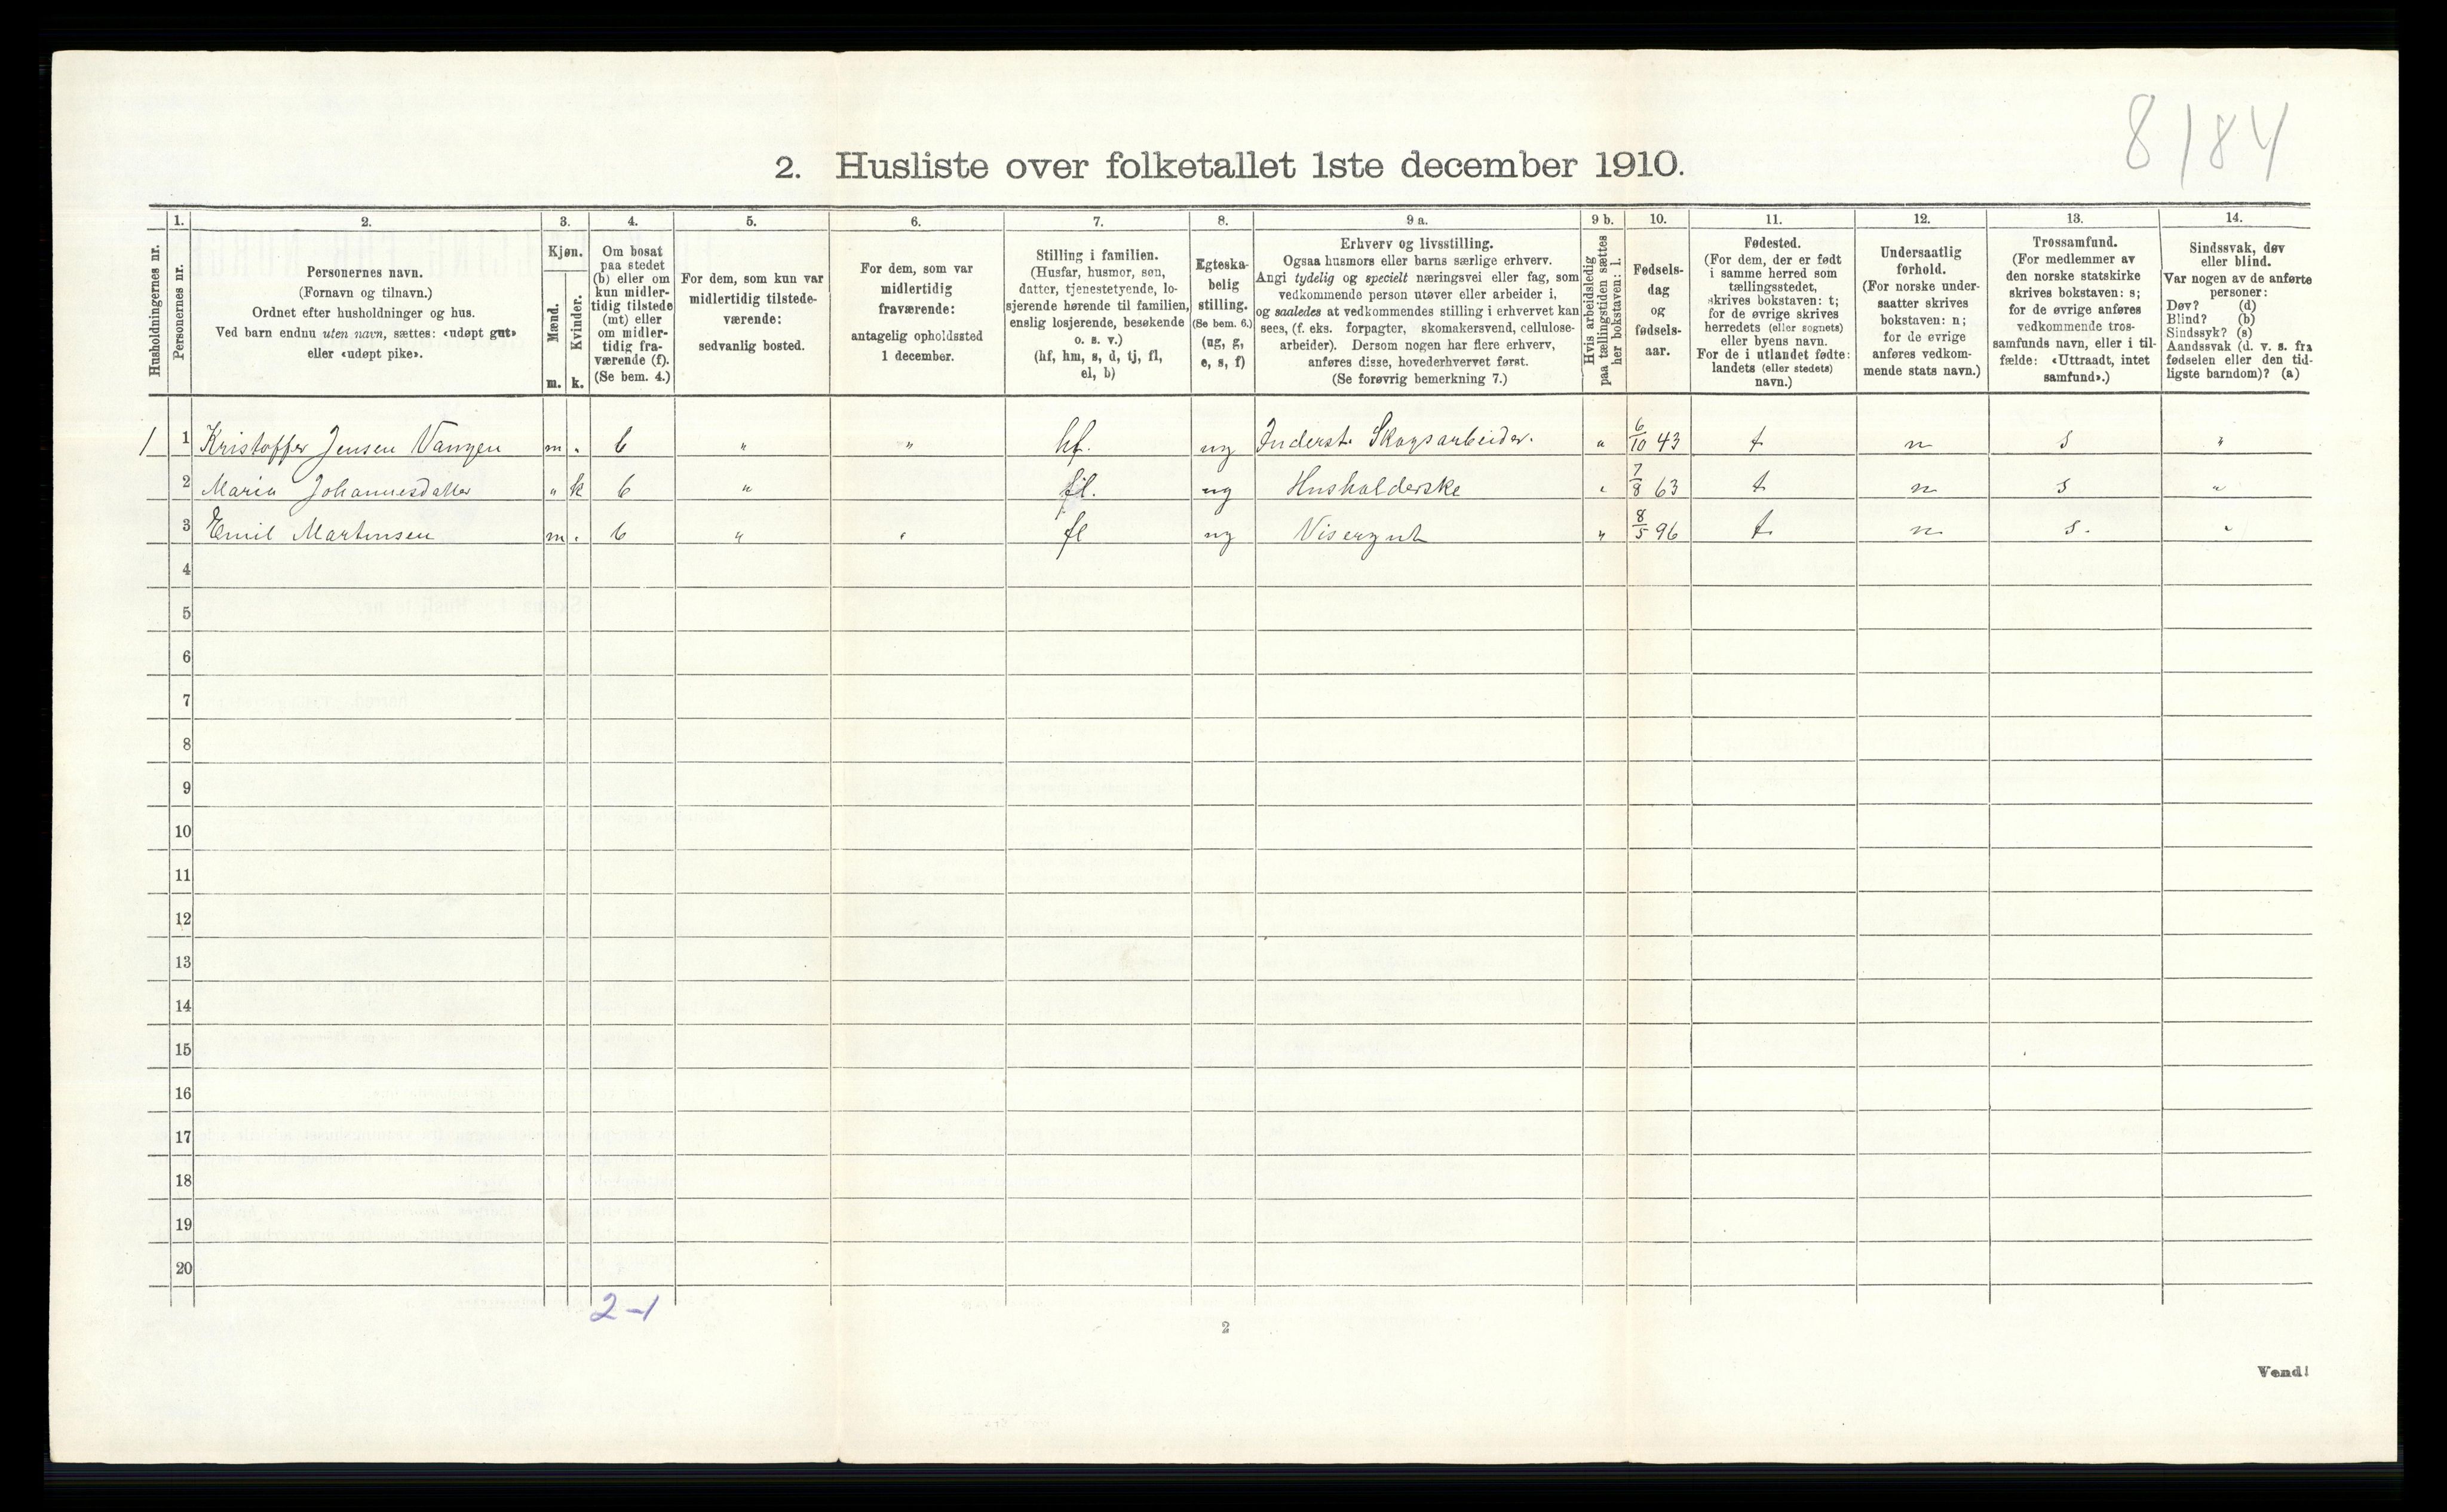 8/84
2. Husliste over folketallet 1ste december 1910.
Husholdningernes nr.
1.
Personernes nr.
2.
Personernes navn.
(Fornavn og tilnavn.)
Ordnet efter husholdninger og hus.
Ved barn endnu uten navn, sættes: «udøpt gut»
eller «udøpt pike».
3.
Kjøn.
Mænd.
Kvinder.
m. k.
4.
Om bosat
paa stedet
(b) eller om
kun midler-
tidig tilstede
(mt) eller
om midler-
tidig fra-
værende (f).
(Se bem. 4.)
5.
For dem, som kun var
midlertidig tilstede-
værende:
sedvanlig bosted.
6.
For dem, som var
midlertidig
fraværende:
antagelig opholdssted
1 december.
7.
Stilling i familien.
(Husfar, husmor, søn,
datter, tjenestetyende, lo-
sjerende hørende til familien,
enslig losjerende, besøkende
o. s. v.)
(hf, hm, s, d, tj, fl,
el, b)
8.
Egteska-
belig
stilling.
(Se bem. 6.)
(ug, g,
e, s, f)
9 a.
Erhverv og livsstilling.
Ogsaa husmors eller barns særlige erhverv.
Angi tydelig og specielt næringsvei eller fag, som
vedkommende person utøver eller arbeider i,
og saaledes at vedkommendes stilling i erhvervet kan
sees, (f. eks. forpagter, skomakersvend, cellulose-
arbeider). Dersom nogen har flere erhverv,
anføres disse, hovederhvervet først.
(Se forøvrig bemerkning 7.)
9 b.
Hvis arbeidsledig
paa tællingstiden sættes
her bokstaven: l.
10.
Fødsels-
dag
og
fødsels-
aar.
11.
Fødested.
(For dem, der er født
i samme herred som
tællingsstedet,
skrives bokstaven: t;
for de øvrige skrives
herredets (eller sognets)
eller byens navn.
For de i utlandet fødte:
landets (eller stedets)
navn.)
12.
Undersaatlig
forhold.
(For norske under-
saatter skrives
bokstaven: n;
for de øvrige
anføres vedkom-
mende stats navn.)
13.
Trossamfund.
(For medlemmer av
den norske statskirke
skrives bokstaven: s;
for de øvrige anføres
vedkommende tros-
samfunds navn, eller i til-
fælde: «Uttraadt, intet
samfund».)
14.
Sindssvak, døv
eller blind.
Var nogen av de anførte
personer:
Døv? (d)
Blind? (b)
Sindssyk? (s)
Aandssvak (d. v. s. fra
fødselen eller den tid-
ligste barndom)? (a)
1 1 Kristoffer Jensen Vangen m . b " " hf. ug Inderst. Skogsarbeider. " 6/10 43 t n s "
2 Maria Johannesdatter " k b " fl. ug Husholderske " 7/8 63 t n s "
3 Emil Martinsen m . b " " fl ug Visergut " 8/5 96 t n s. "
4
5
6
7
8
9
10
11
12
13
14
15
16
17
18
19
20
2-1
2
Vend!